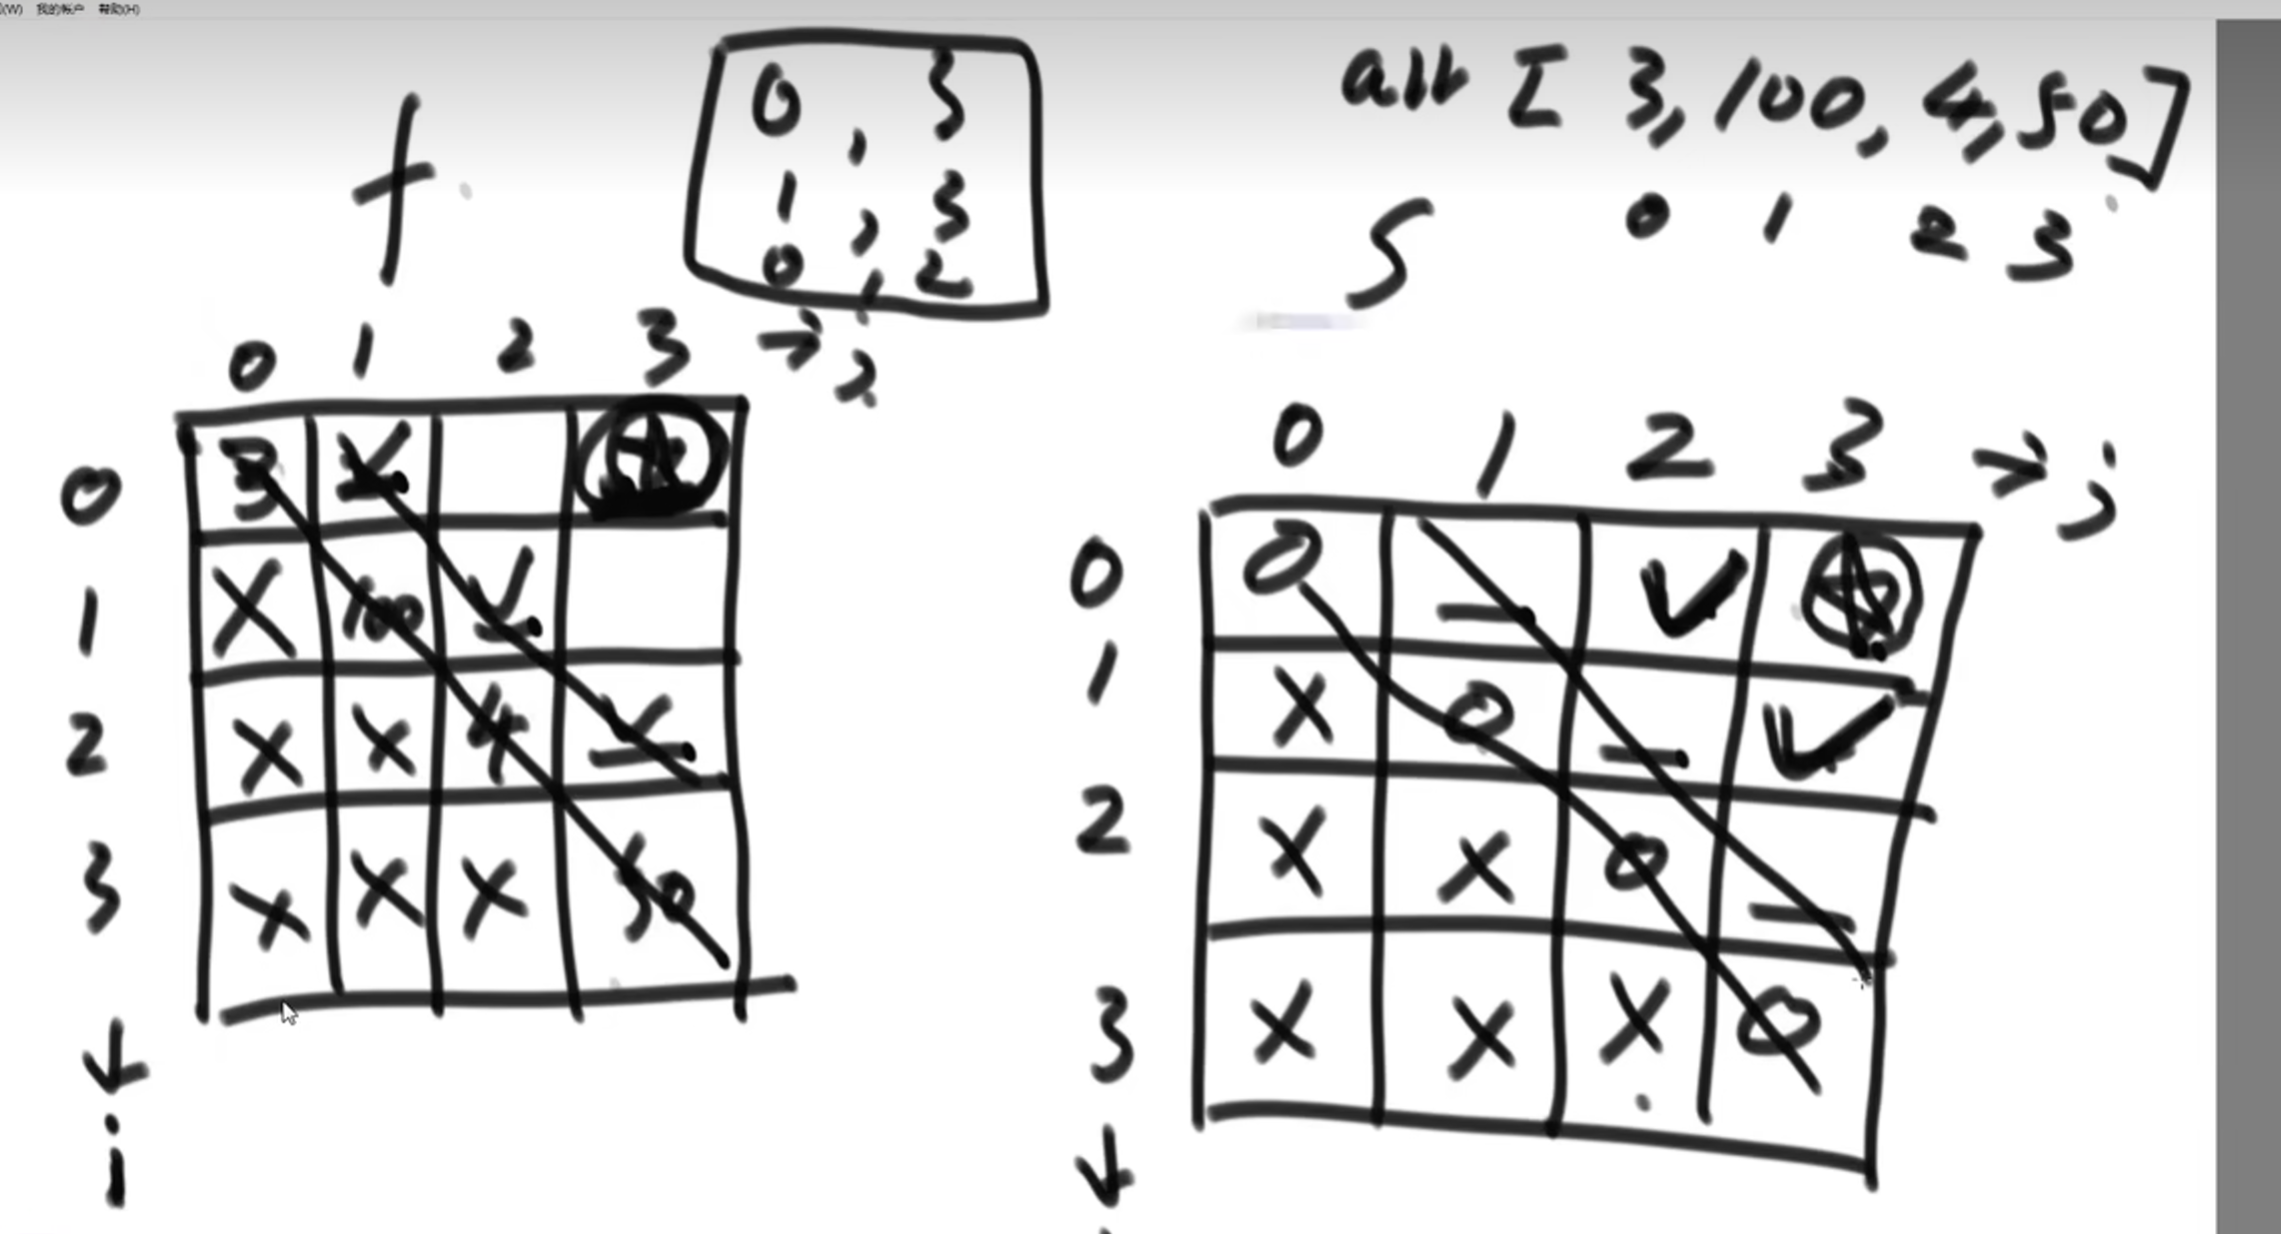 (W) 我的帐户 帮助(H)
f
0 , 3
1 , 3
0 , 2
arr [ 3, 100, 4, 50 ]
S 0 1 2 3
0 1 2 3 → j
0 3
1 X 100
2 X X 4
3 X X X 50
↓
i
0 1 2 3 → j
0 0 – ✓
1 X 0 – ✓
2 X X 0 –
3 X X X 0
↓